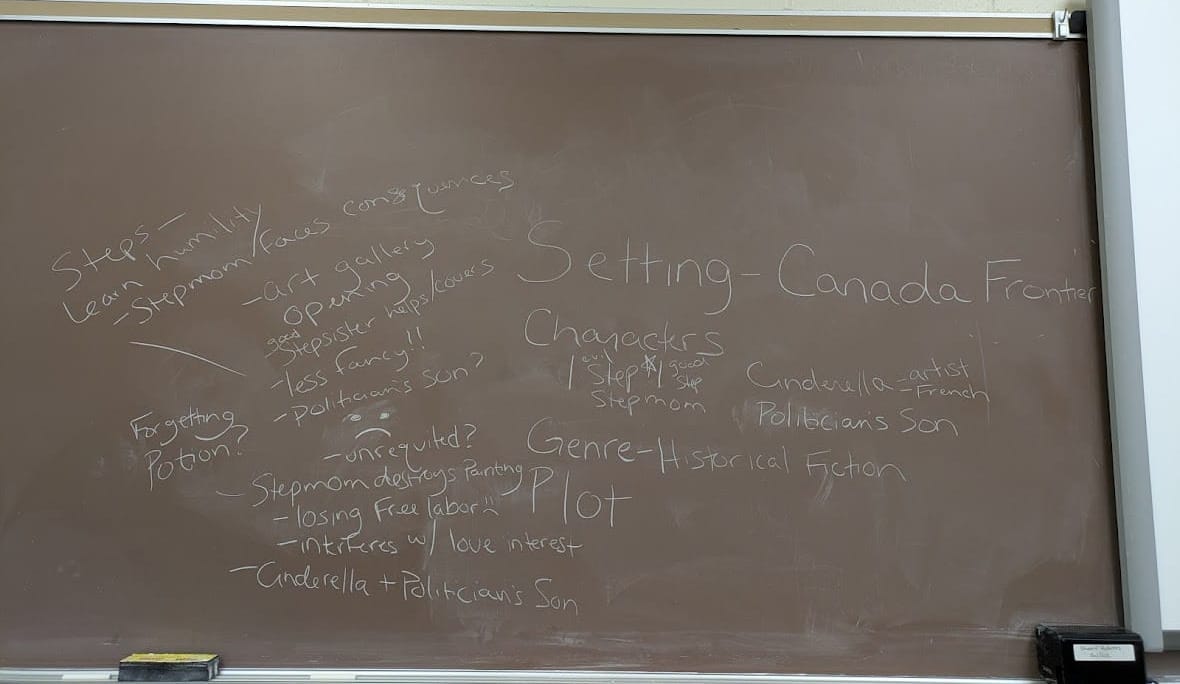 Steps-
Learn humility
-Stepmom/faces consequences
-art gallery
opening
good
Stepsister helps/covers
-less fancy!!
-Politician's son?
-unrequited?
Forgetting
Potion?
-Stepmom destroys Painting
-losing Free labor!!
-interferes w/ love interest
-Cinderella + Politician's Son
Setting-Canada Frontier
Characters
1 evil Step 1 good Step
Stepmom
Cinderella-artist
-French
Politician's Son
Genre-Historical Fiction
Plot